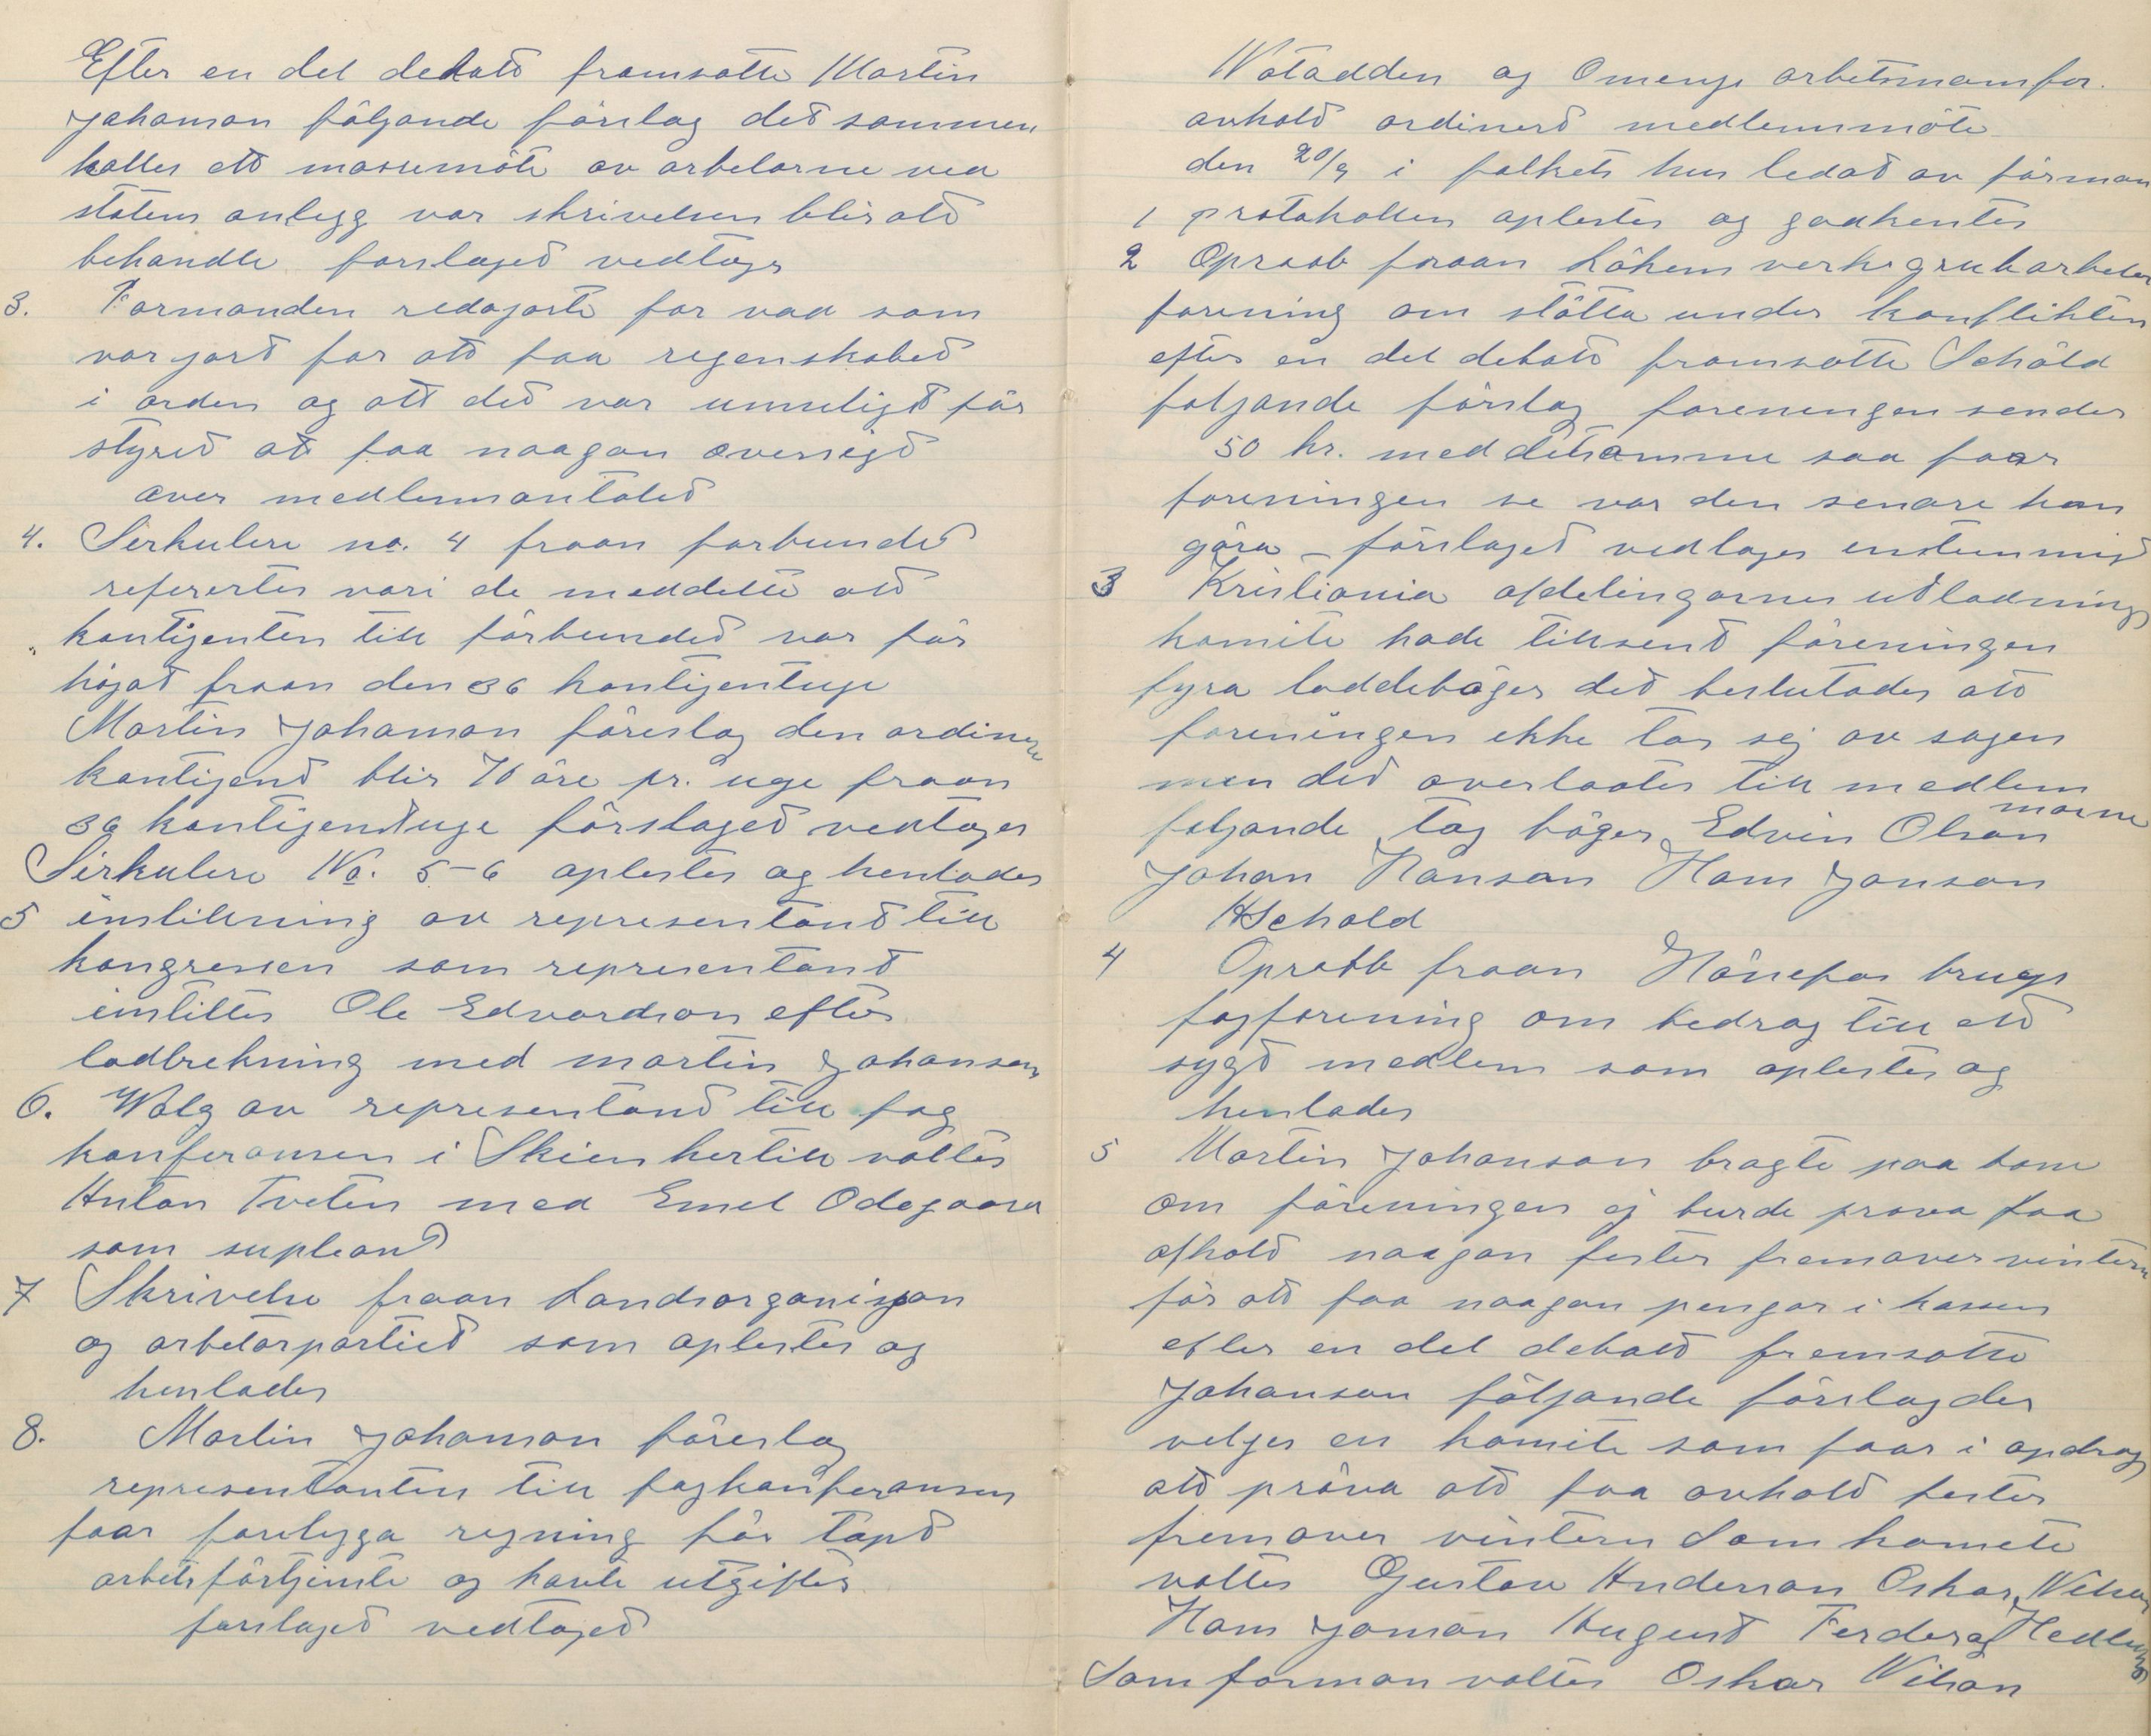 Efter en del debatt framsatte Martin
Johanson följande förslag det sammen
kalles ett massemöte av arbetarne ved
statens anlegg var skrivelsen blir att
behandle forslaget vedtages
3. Formanden redogorte for vad som
var gort for att faa regenskabet
i orden og att det var umuligt för
styret att faa naagon oversigt
over medlemsantalet
4. Serkulere no. 4 fraan forbundet
refererter vari de meddelte att
kontigenten till förbundet var för
höjat fraan den 36 kontigentuge
Martin Johanson föreslog den ordinere
kontigent blir 70 öre pr. uge fraan
36 kontigentuge förslaget vedtages
Serkulere No. 5-6 oplestes og henlades
5 instillning av representant till
kongressen som representant
instilltes Ole Edvardson efter
lodtrekning med Martin Johansen
6. Walg av representant till fag
konferansen i Skien hertill valtes
Anton Tveten med Emel Odegaard
som supleant
7 Skrivelse fraan Landsorganisjon
og arbetarpartiet som oplestes og
henlades
8. Martin Johanson föreslog
representanten till fagkonferansen
faar forelegga regning för tapt
arbetsförtjenste og havte utgifter
forslaget vedtaget
Notadden og Omengs arbetsmansfor.
avholt ordinert medlemsmöte
den 20/9 i folkets hus ledat av förman
1 protokollen oplestes og godkentes
2 Opraab fraan Lökens verks grubarbeder
forening om stötta under konflikten
efter en del debatt framsatte Schöld
foljande förslag foreningen sender
50 kr. med detsamme saa faar
foreningen se var den senare kan
göra – förslaget vedtages enstemmigt
3 Kristiania afdelingarnes utlodnings
komite hade tillsent föreningen
fyra loddeböger det beslutades att
foreningen ekke tar sej av sagen
men det overlaates till medlem
marne
foljande tog böger Edvin Olson
Johan Hanson Hans Janson
H Schold
4 Oprabb fraan Hönefos brugs
fagforening om bedrag till ett
sygt medlem som oplestes og
henlades
5 Martin Johanson bragte paa bane
om föreningen ej burde prova faa
afholt naagon fester fremover vintern
för att faa naagon pengar i kassen
efter en del debatt fremsatte
Johanson följande förslag der
velges en komite som faar i opdrag
att pröva att faa avholt fester
fremover vintern Som komete
valtes Gustav Anderson Oskar Nilson
Hans Janson August Ferder og Hedlund
Som forman valtes Oskar Nilson